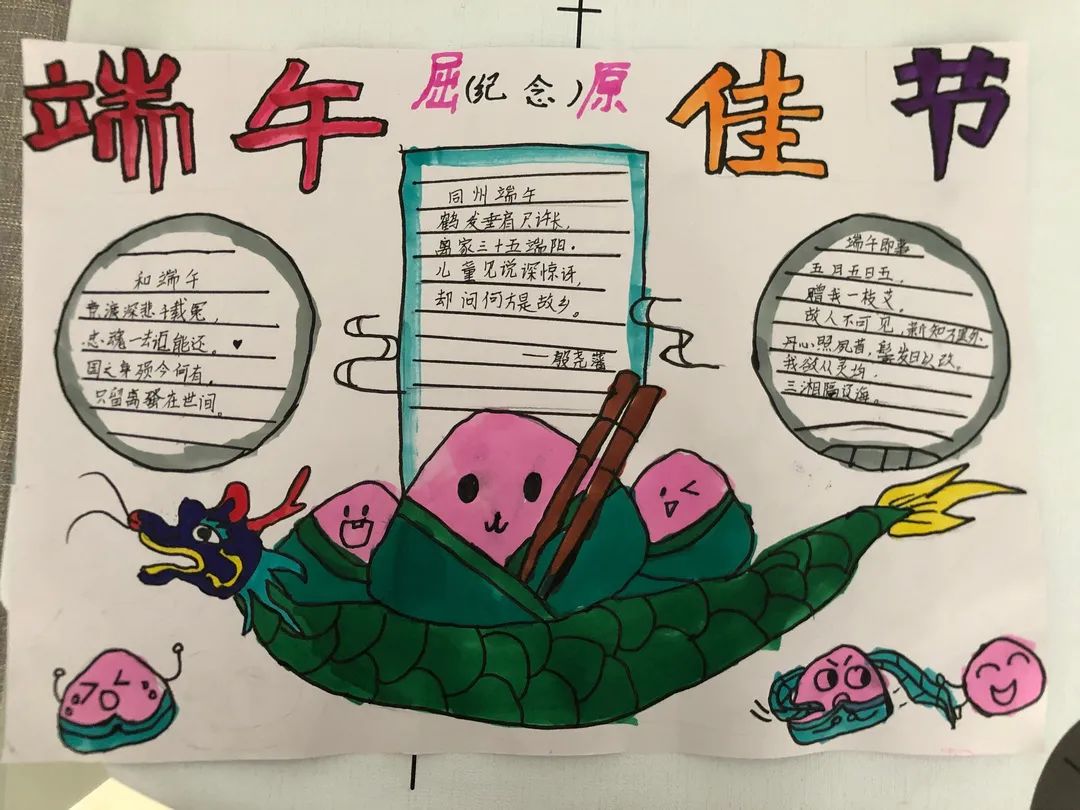 端午 屈(纪念)原 佳节
和端午
竞渡深悲千载冤,
忠魂一去讵能还。
国亡身殒今何有,
只留离骚在世间。
同州端午
鹤发垂肩尺许长,
离家三十五端阳.
儿童见说深惊讶,
却问何方是故乡。
——殷尧藩
端午即事
五月五日五,
赠我一枝艾。
故人不可见,新知万里外.
丹心照夙昔,鬓发日以改。
我欲从灵均.
三湘隔辽海。